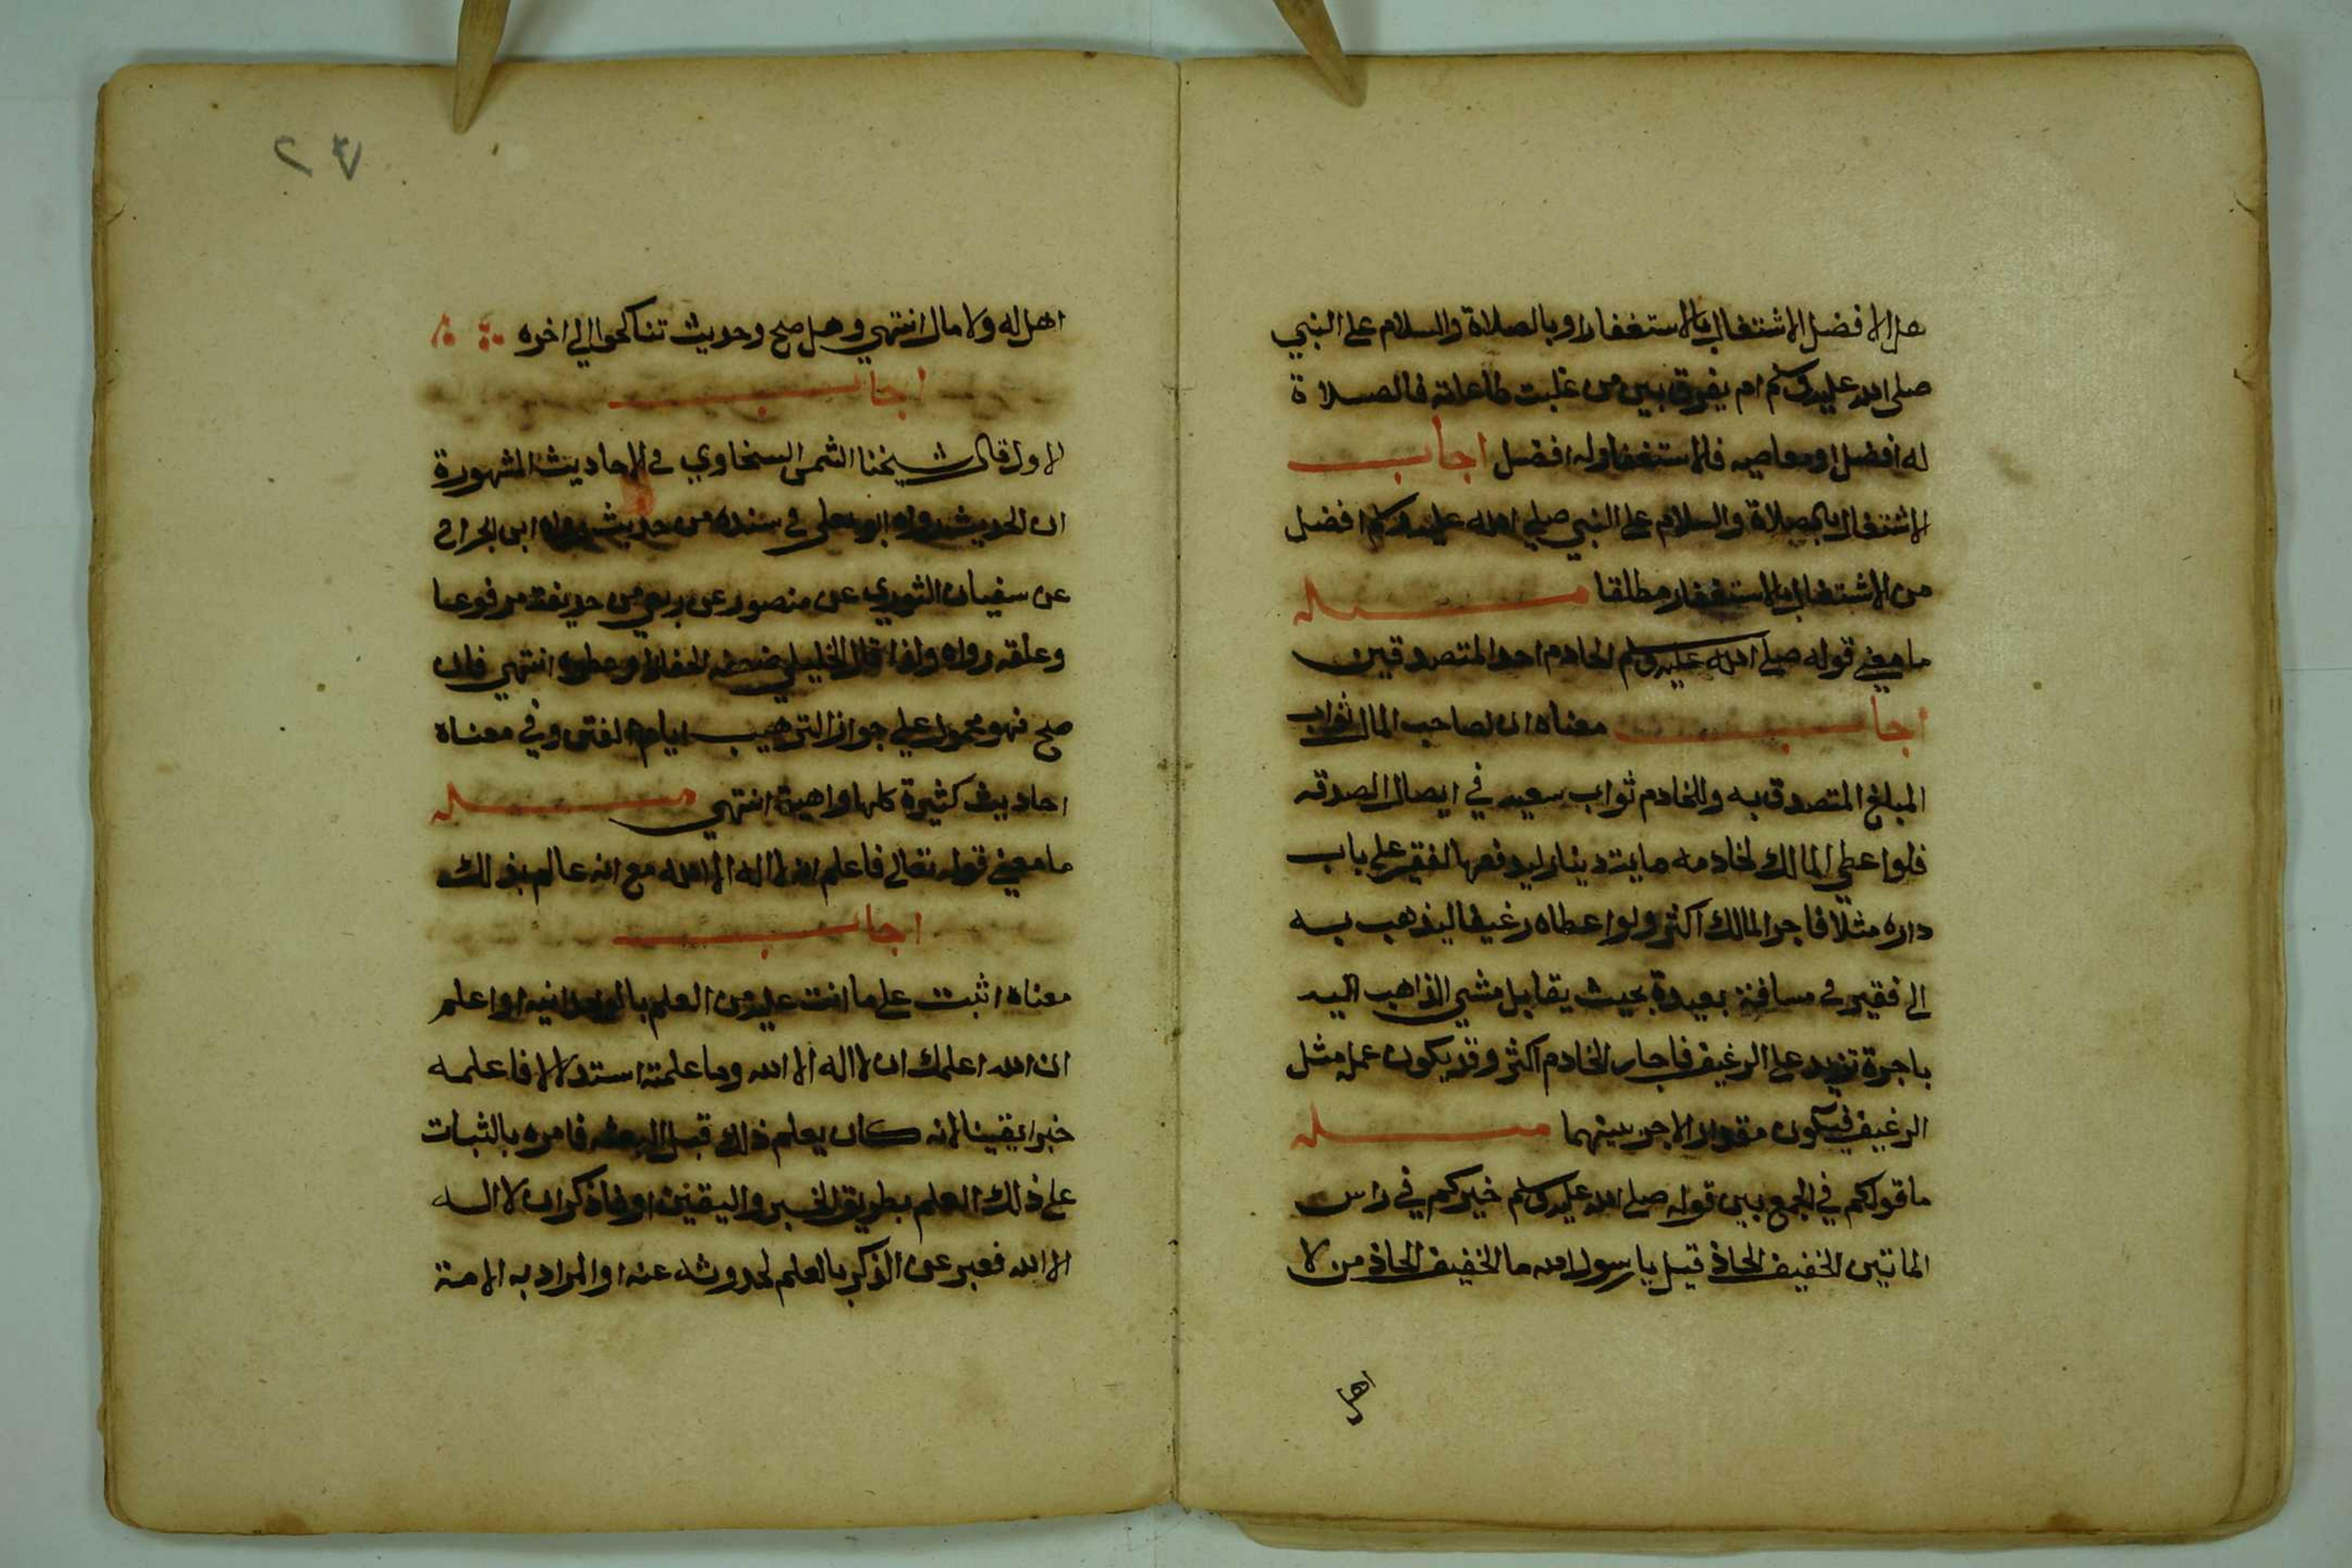 هل الافضل الاشتغال بالاستغفار او بالصلاة والسلام على النبي
صلى الله عليه وسلم ام يفرق بين من غلبت طاعاته فالصلاة
له افضل او معاصيه فالاستغفار له افضل اجاب
الاشتغال بالصلاة والسلام على النبي صلى الله عليه وسلم افضل
من الاشتغال بالاستغفار مطلقا مسئله
ما معنى قوله صلى الله عليه وسلم الخادم احد المتصدقين
اجاب معناه ان لصاحب المال ثواب
المبلغ المتصدق به وللخادم ثواب سعيه في ايصال الصدقه
فلو اعطى المالك لخادمه ماية دينار ليدفعها لفقير على باب
داره مثلا فاجر المالك اكثر ولو اعطاه رغيفا ليذهب به
الى فقير في مسافة بعيدة بحيث يقابل مشي الذاهب اليه
باجرة تزيد على الرغيف فاجر الخادم اكثر وقد يكون عمله مثل
الرغيف فيكون مقدار الاجر بينهما مسئله
ما قولكم في الجمع بين قوله صلى الله عليه وسلم خيركم في راس
الماتين الخفيف الحاذ قيل يا رسول الله ما الخفيف الحاذ من لا
اهل
٢٧
اهل له ولا مال انتهي وهل صح وحديث تناكحوا الي اخره
اجاب
الاول قال شيخنا الشمس السخاوي في الاحاديث المشهورة
ان الحديث رواه ابو يعلى في سنده من حديث رواد ابن الجراح
عن سفيان الثوري عن منصور عن ربعي عن حذيفة مرفوعا
وعلقه رواه ولذا قال الخليلي انتهي فان
صح فهو محمول على جواز الترهيب ايام الفتن وفي معناه
احاديث كثيرة كلها واهية انتهي مسئله
ما معنى قوله تعالى فاعلم انه لا اله الا الله مع انه عالم بذلك
اجاب
معناه اثبت على ما انت عليه من العلم بالوحدانيه او اعلم
ان الله اعلمك ان لا اله الا الله وما علمته استدلالا فاعلمه
خبرا يقينا لانه كان يعلم ذلك قبل البعثه فامره بالثبات
على ذلك العلم بطريق الخبر واليقين او فاذكر ان لا اله
الا الله فعبر عن الذكر بالعلم لحدوثه عنه او المراد به الامة